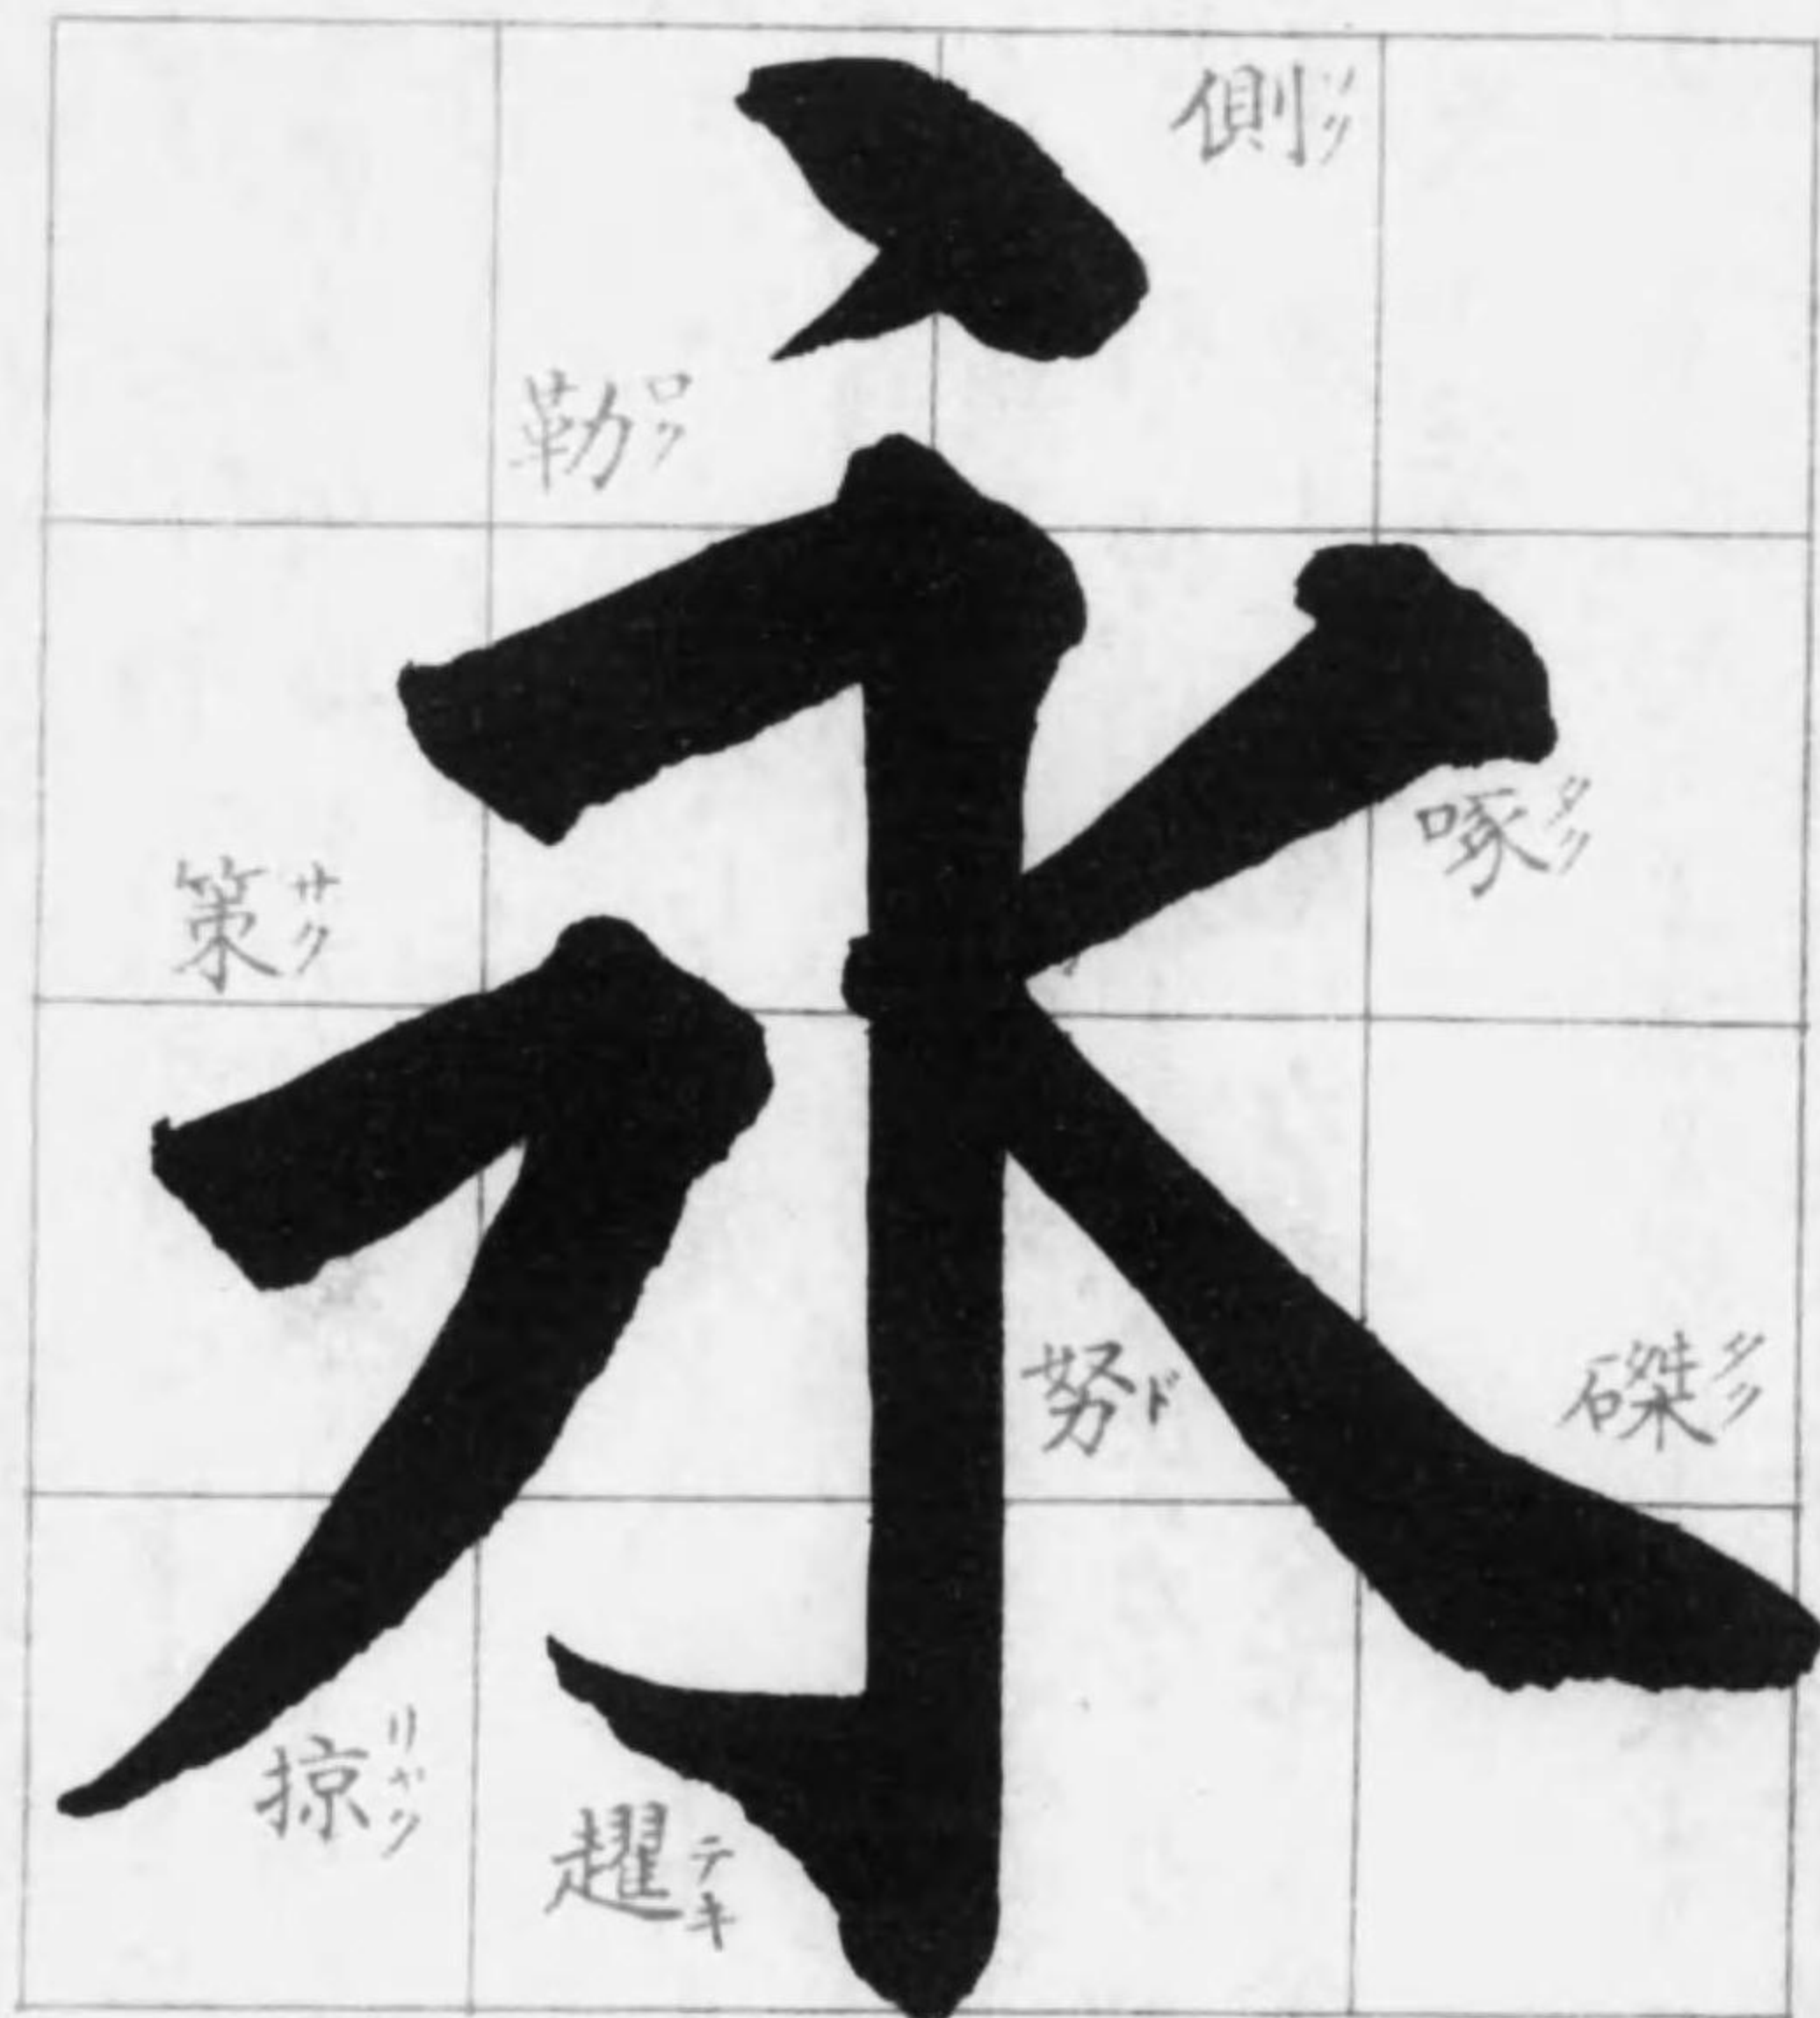 永
側 ソク
勒 ロク
啄 タク
策 サク
努 ド
磔 タク
掠 リヤク
趯 テキ